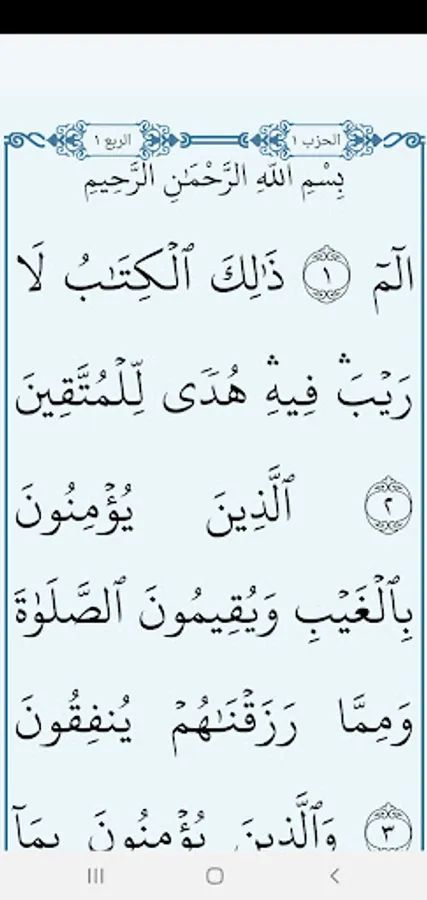 الحزب ١ الربع ١
بِسْمِ اللَّهِ الرَّحْمَٰنِ الرَّحِيمِ
الٓمٓ ١ ذَٰلِكَ ٱلْكِتَٰبُ لَا
رَيْبَ ۛ فِيهِ ۛ هُدًى لِّلْمُتَّقِينَ
٢ ٱلَّذِينَ يُؤْمِنُونَ
بِٱلْغَيْبِ وَيُقِيمُونَ ٱلصَّلَوٰةَ
وَمِمَّا رَزَقْنَٰهُمْ يُنفِقُونَ
٣ وَٱلَّذِينَ يُؤْمِنُونَ بِمَآ